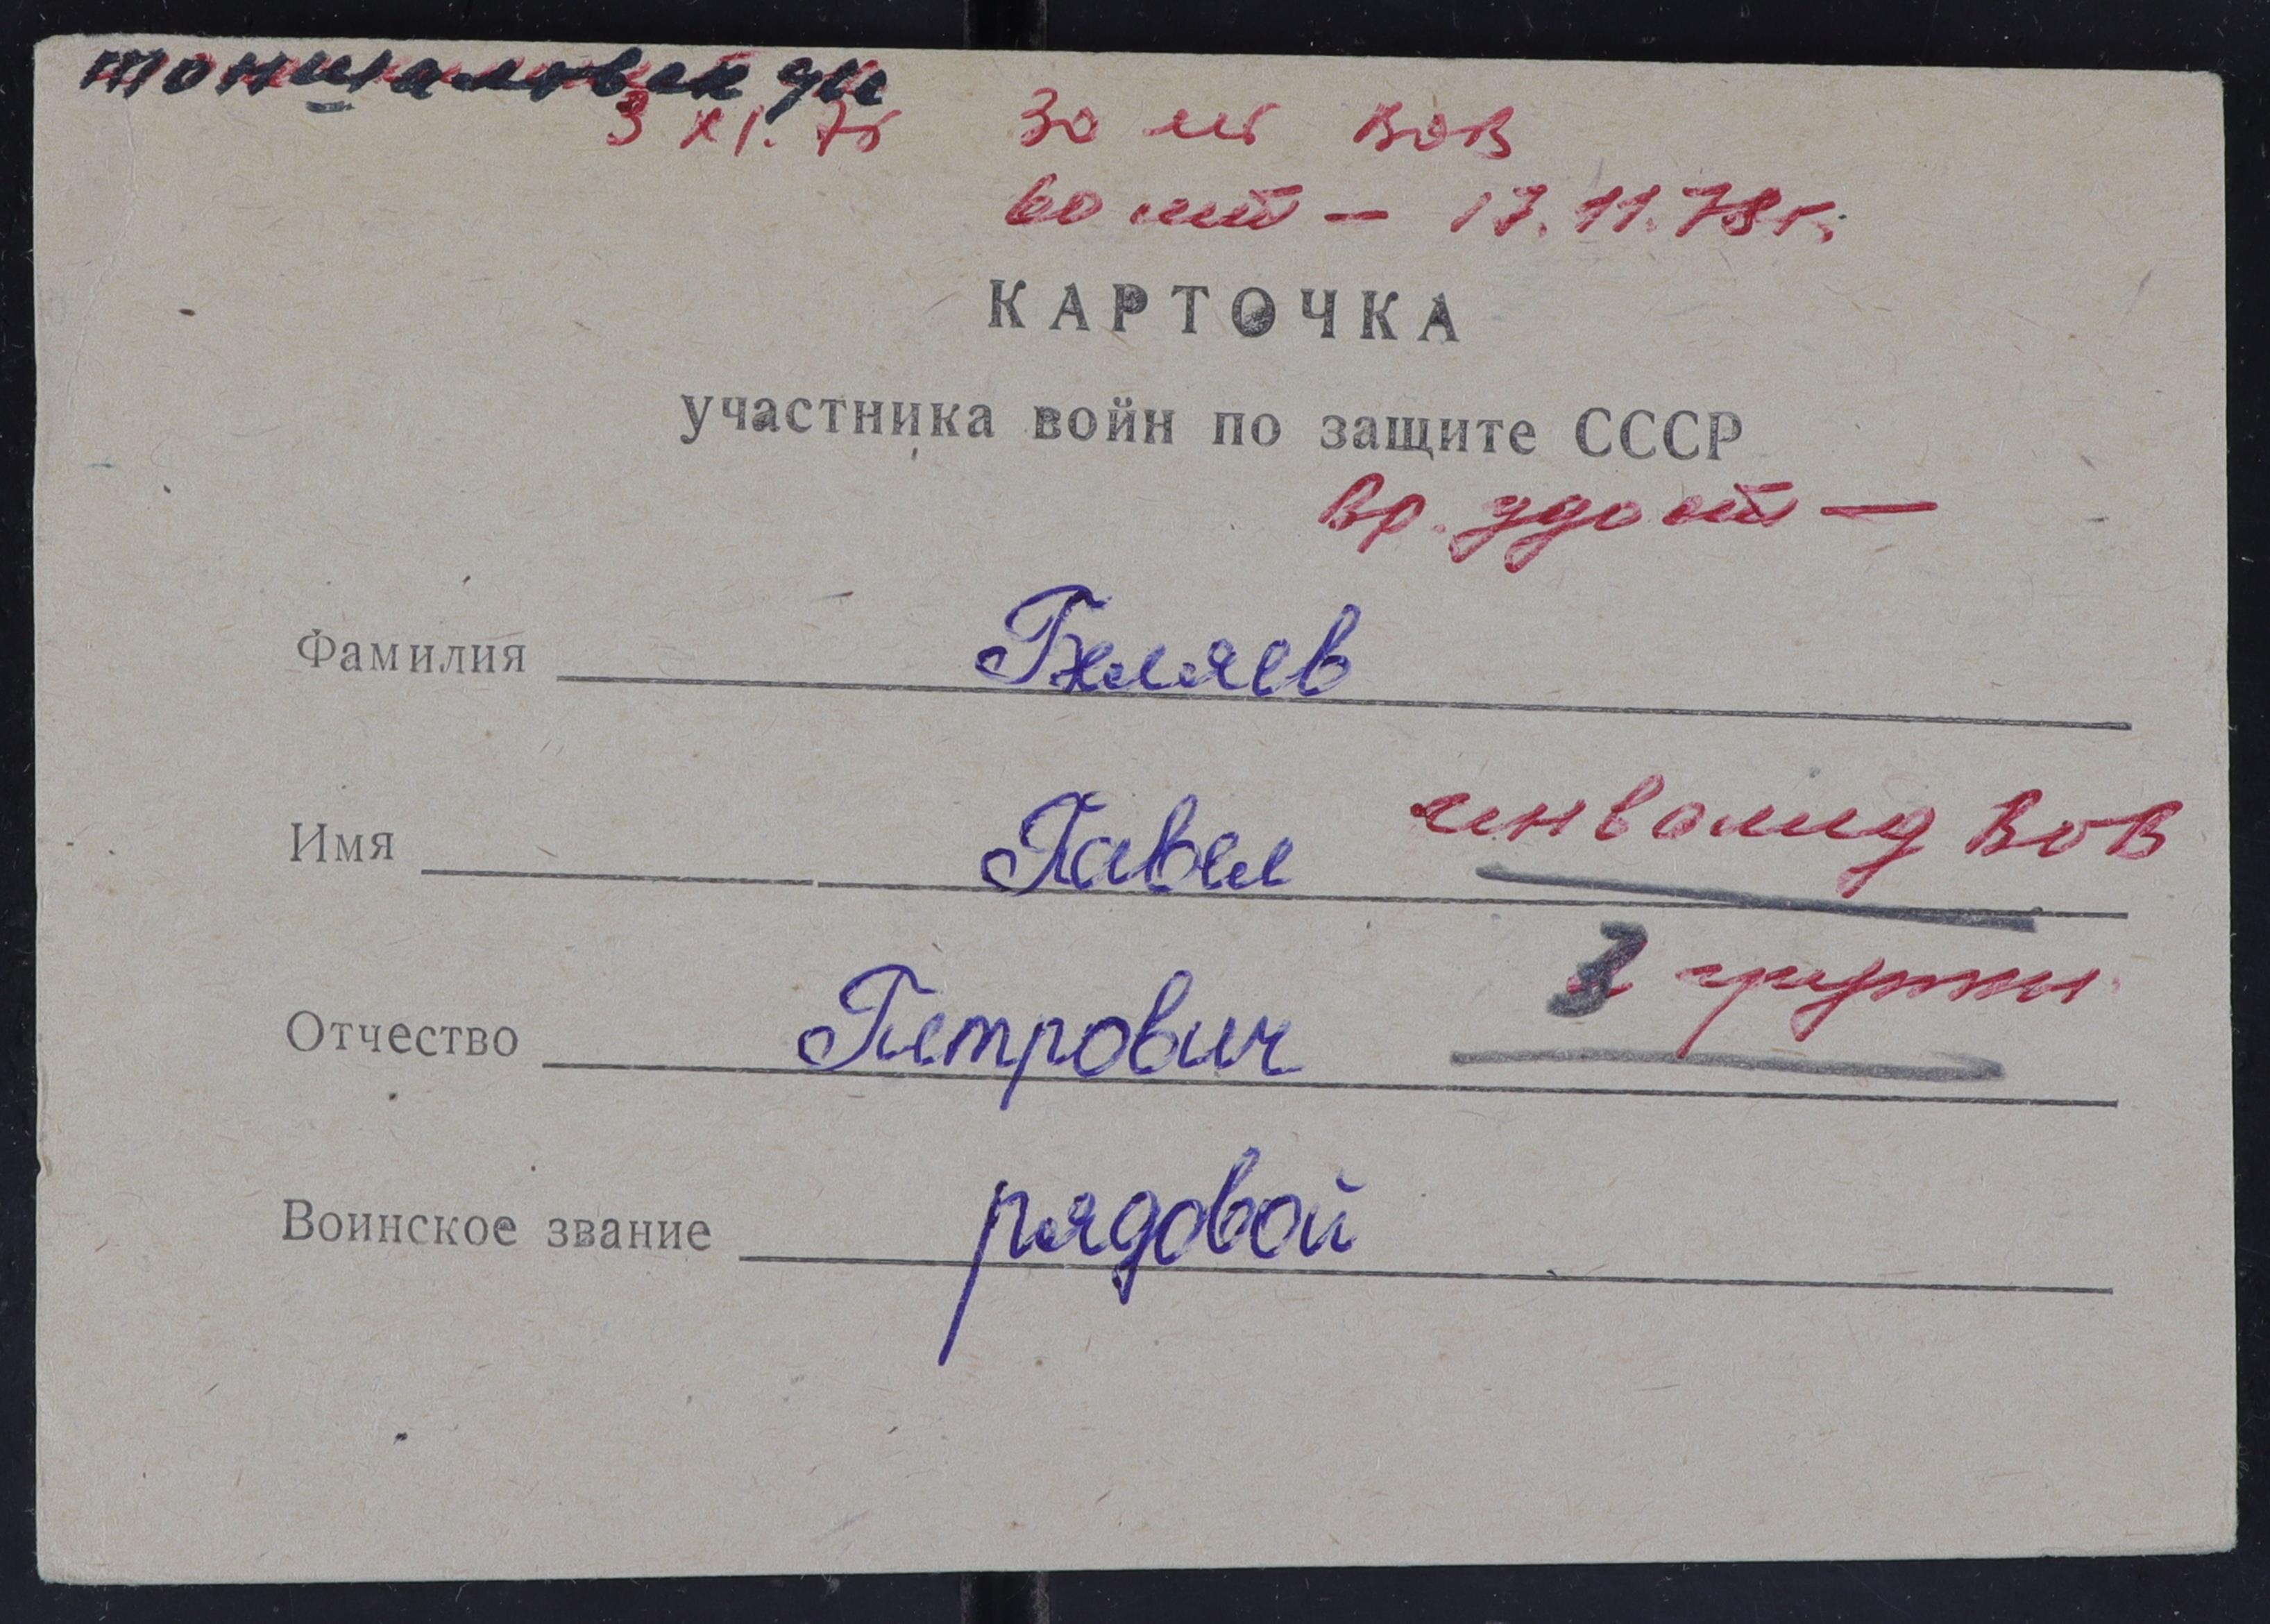 Тоншаловск
3 XI. 75 30 лет ВОВ
60 лет - 17.11.78г.
КАРТОЧКА
участника войн по защите СССР
Вр. удост -
Фамилия Беляев
Имя Павел инвалид ВОВ
Отчество Петрович 3 группы
Воинское звание рядовой